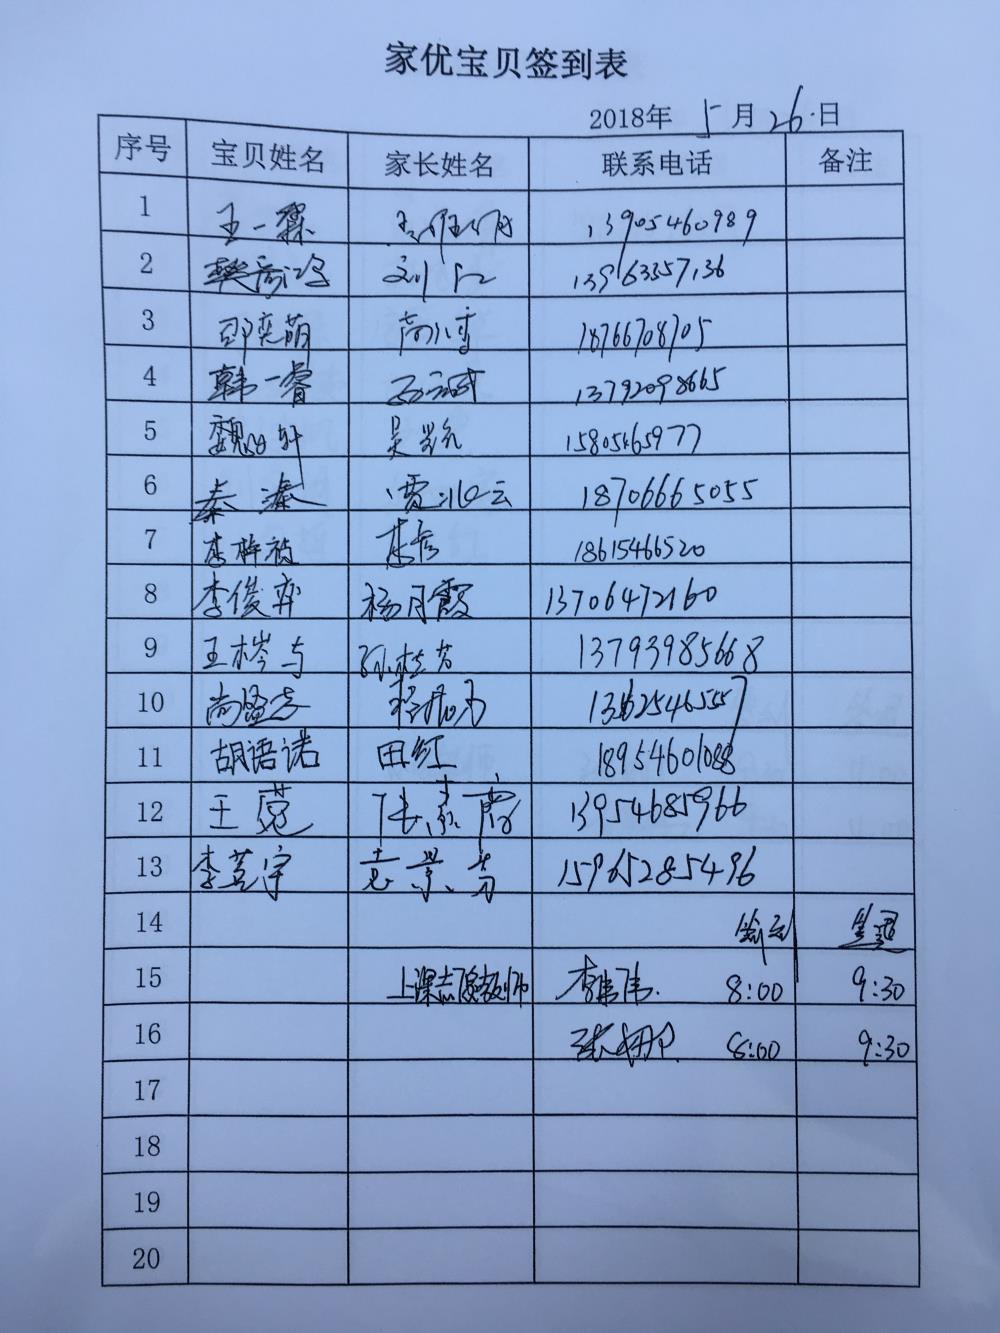 家优宝贝签到表
2018年 5月26日
序号 宝贝姓名 家长姓名 联系电话 备注
1 王一霖 13905460989
2 樊 刘 13963357136
3 邵奕萌 尚 18766708705
4 韩一睿 13792098665
5 魏 轩 吴 15805465977
6 秦溱 贾 云 18706665055
7 李梓 李 18615466520
8 李俊弈 杨月霞 13706472160
9 王梣与 孙桂芳 13793985668
10 尚
11 胡语诺 田红 18954601088
12 王 张 霞 13954685966
13 李 宇 袁景芳 15965285496
14 签到 签退
15 上课志愿教师 李伟伟 8:00 9:30
16 张娜 8:00 9:30
17
18
19
20